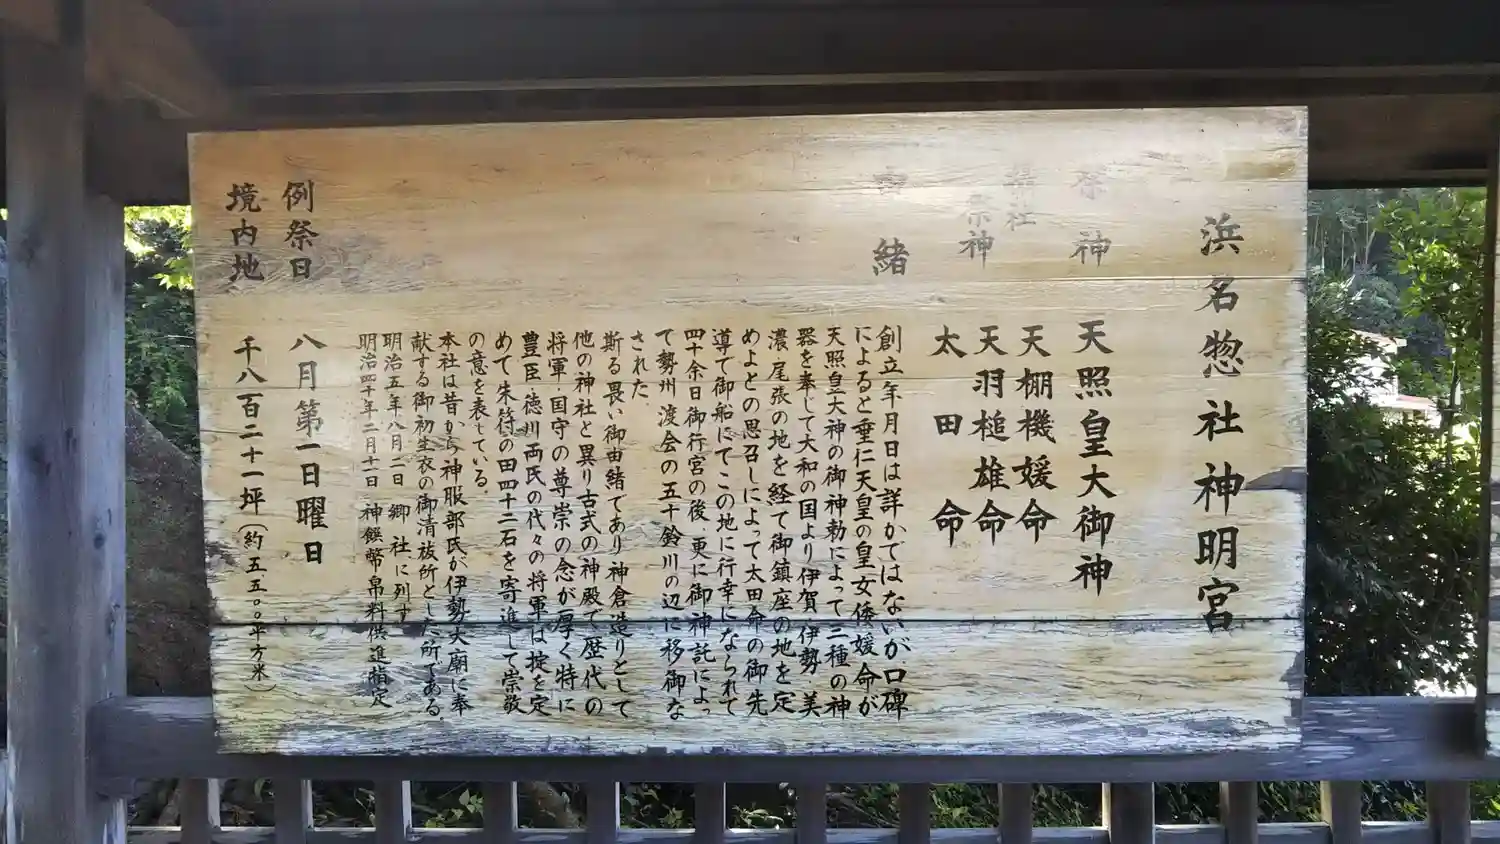 浜名惣社神明宮
祭神 天照皇大御神
摂社 天棚機媛命
祭神 天羽槌雄命
太田命
由緒
創立年月日は詳かではないが口碑
によると垂仁天皇の皇女倭媛命が
天照皇大神の御神勅によって三種の神
器を奉じて大和の国より伊賀 伊勢 美
濃 尾張の地を経て御鎮座の地を定
めよとの思召しによって太田命の御先
導て御船にてこの地に行幸になられて
四十余日御行宮の後、更に御神託によっ
て勢州渡会の五十鈴川の辺に移御な
された
斯る畏い御由緒であり神倉造りとして
他の神社と異り古式の神殿で歴代の
将軍 国守の尊崇の念が厚く特に
豊臣 徳川両氏の代々の将軍は掟を定
めて朱符の田四十二石を寄進して崇敬
の意を表している。
本社は昔から神服部氏が伊勢大廟に奉
献する御初生衣の御清祓所とした所である。
明治五年八月二日 郷社に列す
明治四十年二月十一日 神饌幣帛料供進指定
例祭日 八月第一日曜日
境内地 千八百二十一坪(約五五〇〇平方米)